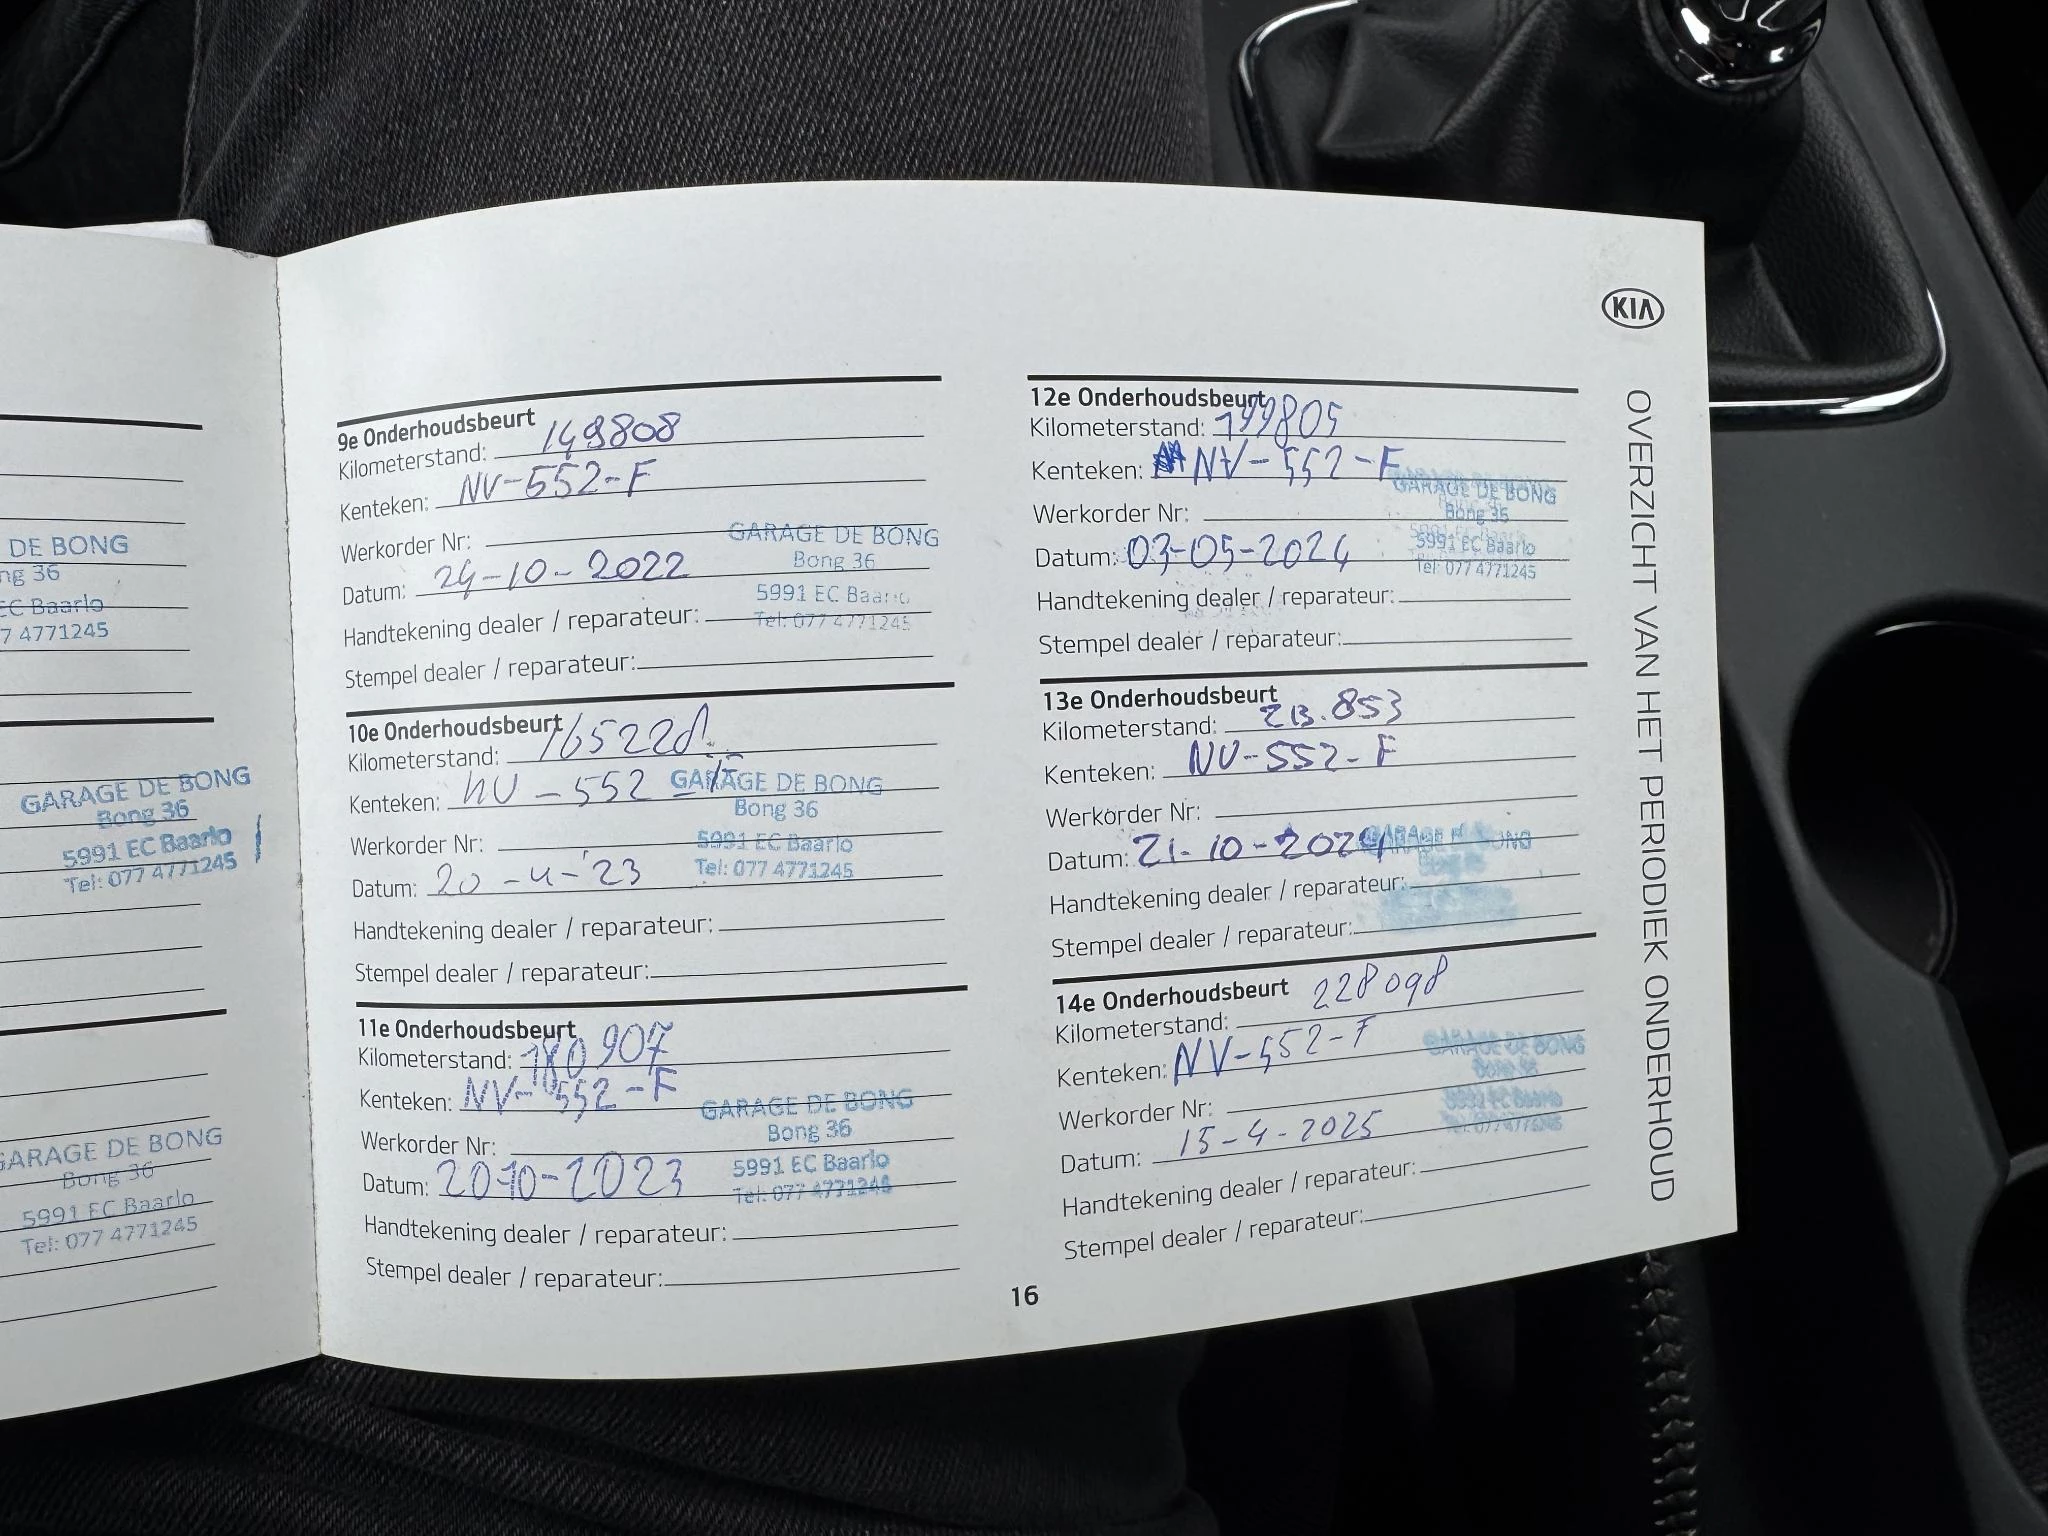 DE BONG
ng 36
EC Baarlo
7 4771245
GARAGE DE BONG
Bong 36
5991 EC Baarlo
Tel: 077 4771245
GARAGE DE BONG
Bong 36
5991 EC Baarlo
Tel: 077 4771245
9e Onderhoudsbeurt
Kilometerstand: 149808
Kenteken: NV-552-F
Werkorder Nr:
Datum: 24-10-2022
Handtekening dealer / reparateur:
Stempel dealer / reparateur:
GARAGE DE BONG
Bong 36
5991 EC Baarlo
Tel: 077 4771245
10e Onderhoudsbeurt
Kilometerstand: 16522
Kenteken: NV-552
Werkorder Nr:
Datum: 20-4-'23
Handtekening dealer / reparateur:
Stempel dealer / reparateur:
GARAGE DE BONG
Bong 36
5991 EC Baarlo
Tel: 077 4771245
11e Onderhoudsbeurt
Kilometerstand: 180907
Kenteken: NV-552-F
Werkorder Nr:
Datum: 20-10-2023
Handtekening dealer / reparateur:
Stempel dealer / reparateur:
GARAGE DE BONG
Bong 36
5991 EC Baarlo
Tel: 077 4771245
12e Onderhoudsbeurt
Kilometerstand: 199805
Kenteken: NV-552-F
Werkorder Nr:
Datum: 03-05-2024
Handtekening dealer / reparateur:
Stempel dealer / reparateur:
GARAGE DE BONG
Bong 36
5991 EC Baarlo
Tel: 077 4771245
13e Onderhoudsbeurt
Kilometerstand: 213.853
Kenteken: NV-552-F
Werkorder Nr:
Datum: 21-10-2024
Handtekening dealer / reparateur:
Stempel dealer / reparateur:
GARAGE DE BONG
Bong 36
14e Onderhoudsbeurt
Kilometerstand: 228098
Kenteken: NV-552-F
Werkorder Nr:
Datum: 15-4-2025
Handtekening dealer / reparateur:
Stempel dealer / reparateur:
GARAGE DE BONG
Bong 36
5991 EC Baarlo
Tel: 077 4771245
KIA
OVERZICHT VAN HET PERIODIEK ONDERHOUD
16